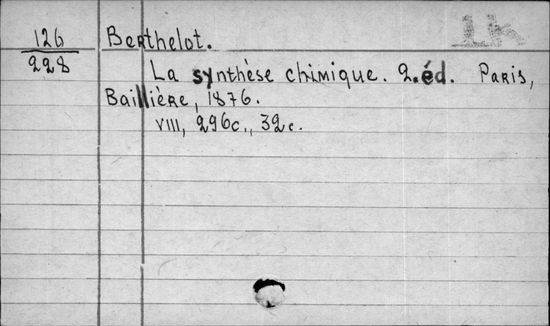 126
228
Berthelot.
1k
La synthèse chimique. 2.éd. Paris,
Baillière, 1876.
VIII, 296c., 32c.